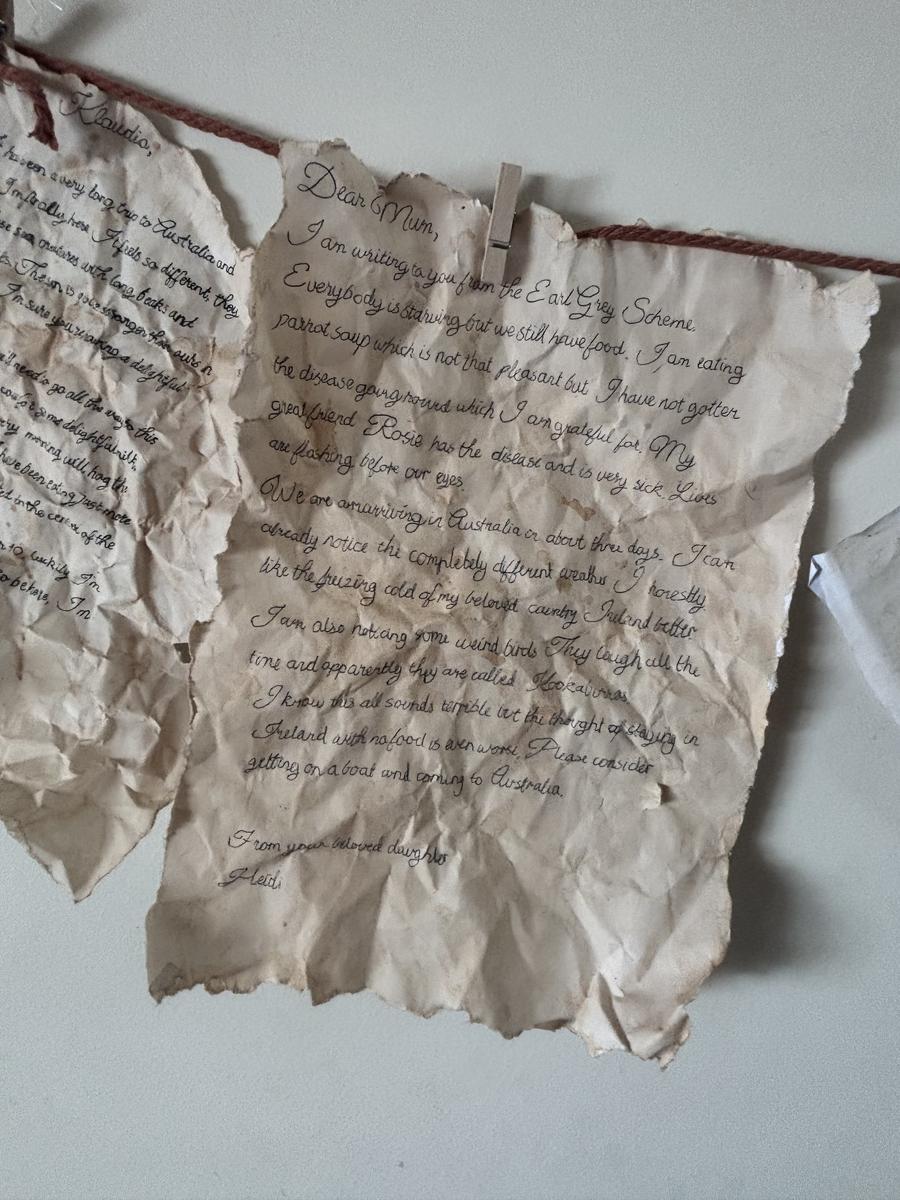 Klaudia,
a very long trip to Australia and
I'm finally here It feels so different, they
sea creatures with long beaks and
The sun is stronger than ours in
I'm sure you're having a delightful
need to go all the way to this
some delightful
morning with
have been eating just
in the centre of the
10, luckily I'm
I'm
Dear Mum,
I am writing to you from the Earl Grey Scheme.
Everybody is starving but we still have food. I am eating
parrot soup which is not that pleasant but I have not gotten
the disease going round which I am grateful for. My
great friend Rosie has the disease and is very sick. Lives
are flashing before our eyes.
We are arriving in Australia in about three days. I can
already notice the completely different weather I honestly
like the freezing cold of my beloved country Ireland better
I am also noticing some weird birds They laugh all the
time and apparently they are called Kookaburras.
I know this all sounds terrible but the thought of staying in
Ireland with no food is even worse. Please consider
getting on a boat and coming to Australia.
From your beloved daughter
Heidi